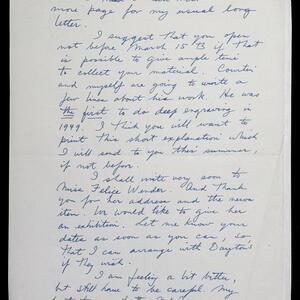 more page for my usual long
letter.
I suggest that you open
not before March 15 if that
is possible to give ample time
to collect your material.
and myself are going to write a
few lines about his work. He was
the first to do deep engraving in
1949. I think you will want to
print this short explanation which
I will send to you this summer,
if not before.
I shall write very soon to
Miss Felice Wender. And thank
you for her address and the news
item. We would like to give her
an exhibition. Let me know your
dates as soon as you can, so
that I can arrange with Dayton's
if they wish.
I am feeling a bit better,
but still have to be careful. My